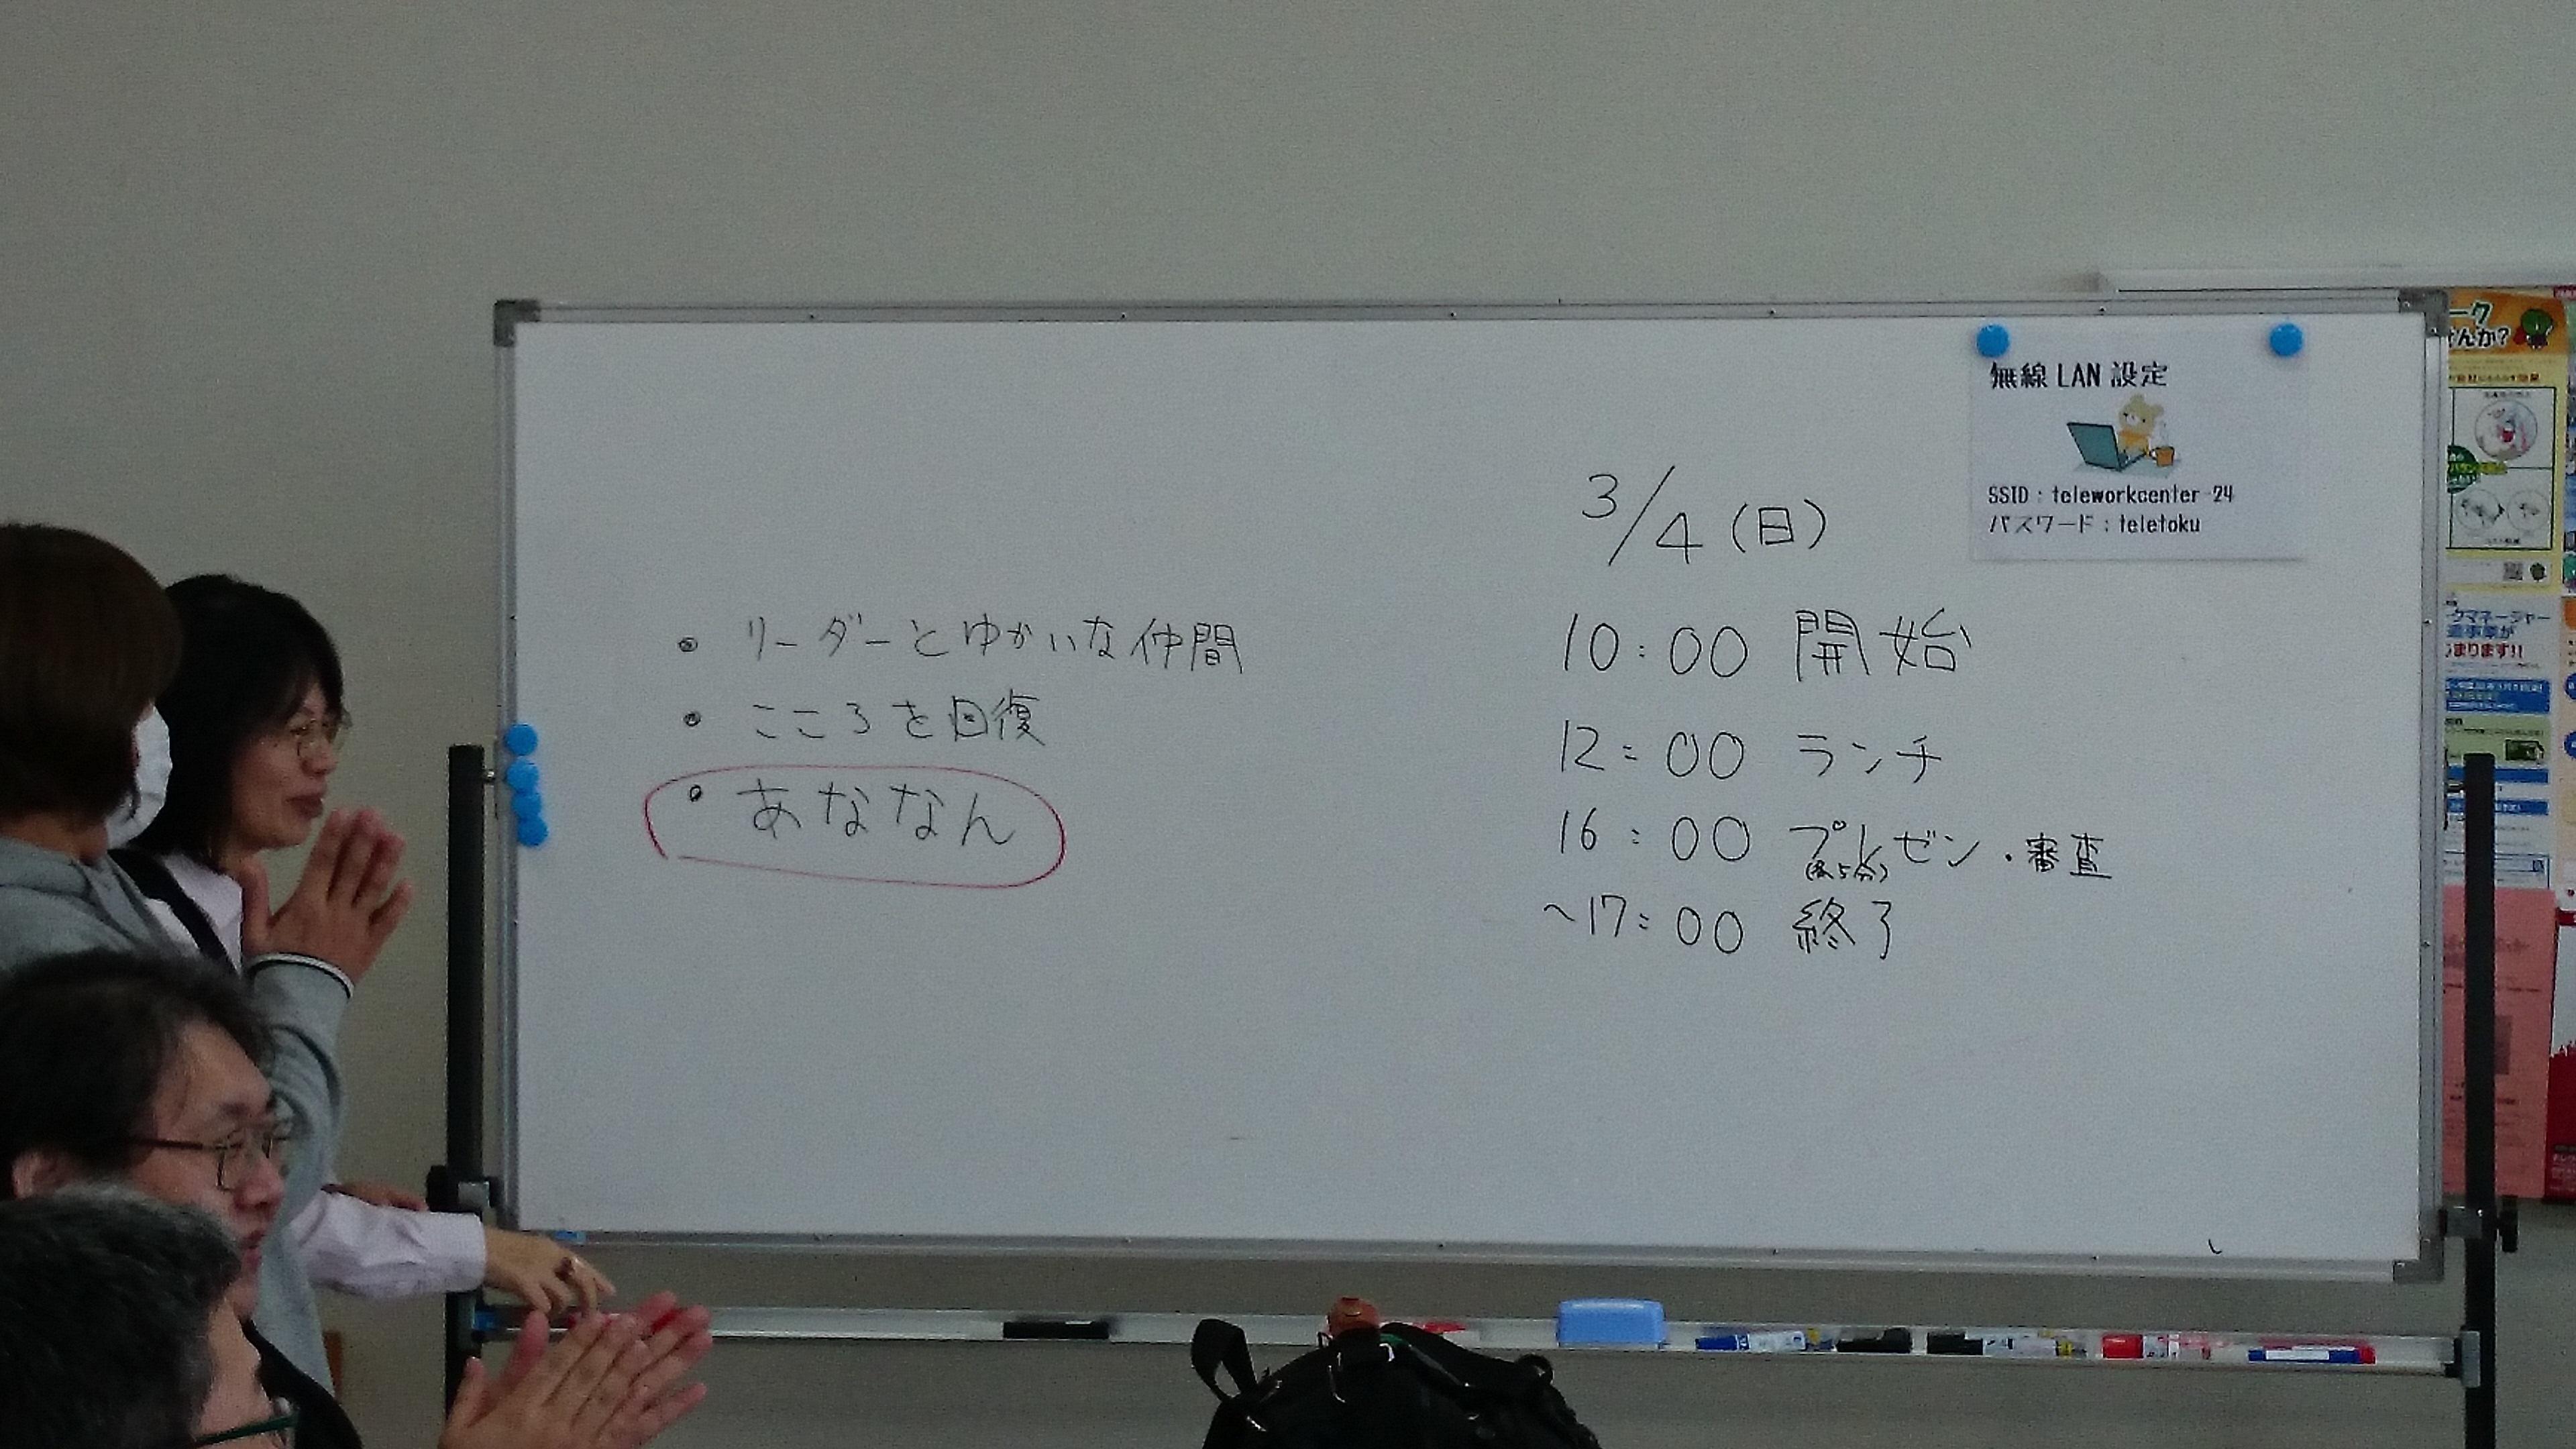 ・リーダーとゆかいな仲間
・こころを回復
・あななん
3/4(日)
10:00 開始
12:00 ランチ
16:00 プレゼン・審査
(各5分)
~17:00 終了
無線LAN設定
SSID:teleworkcenter-24
パスワード:teletoku
ーク
んか?
クマネージャー
造事業が
まります!!